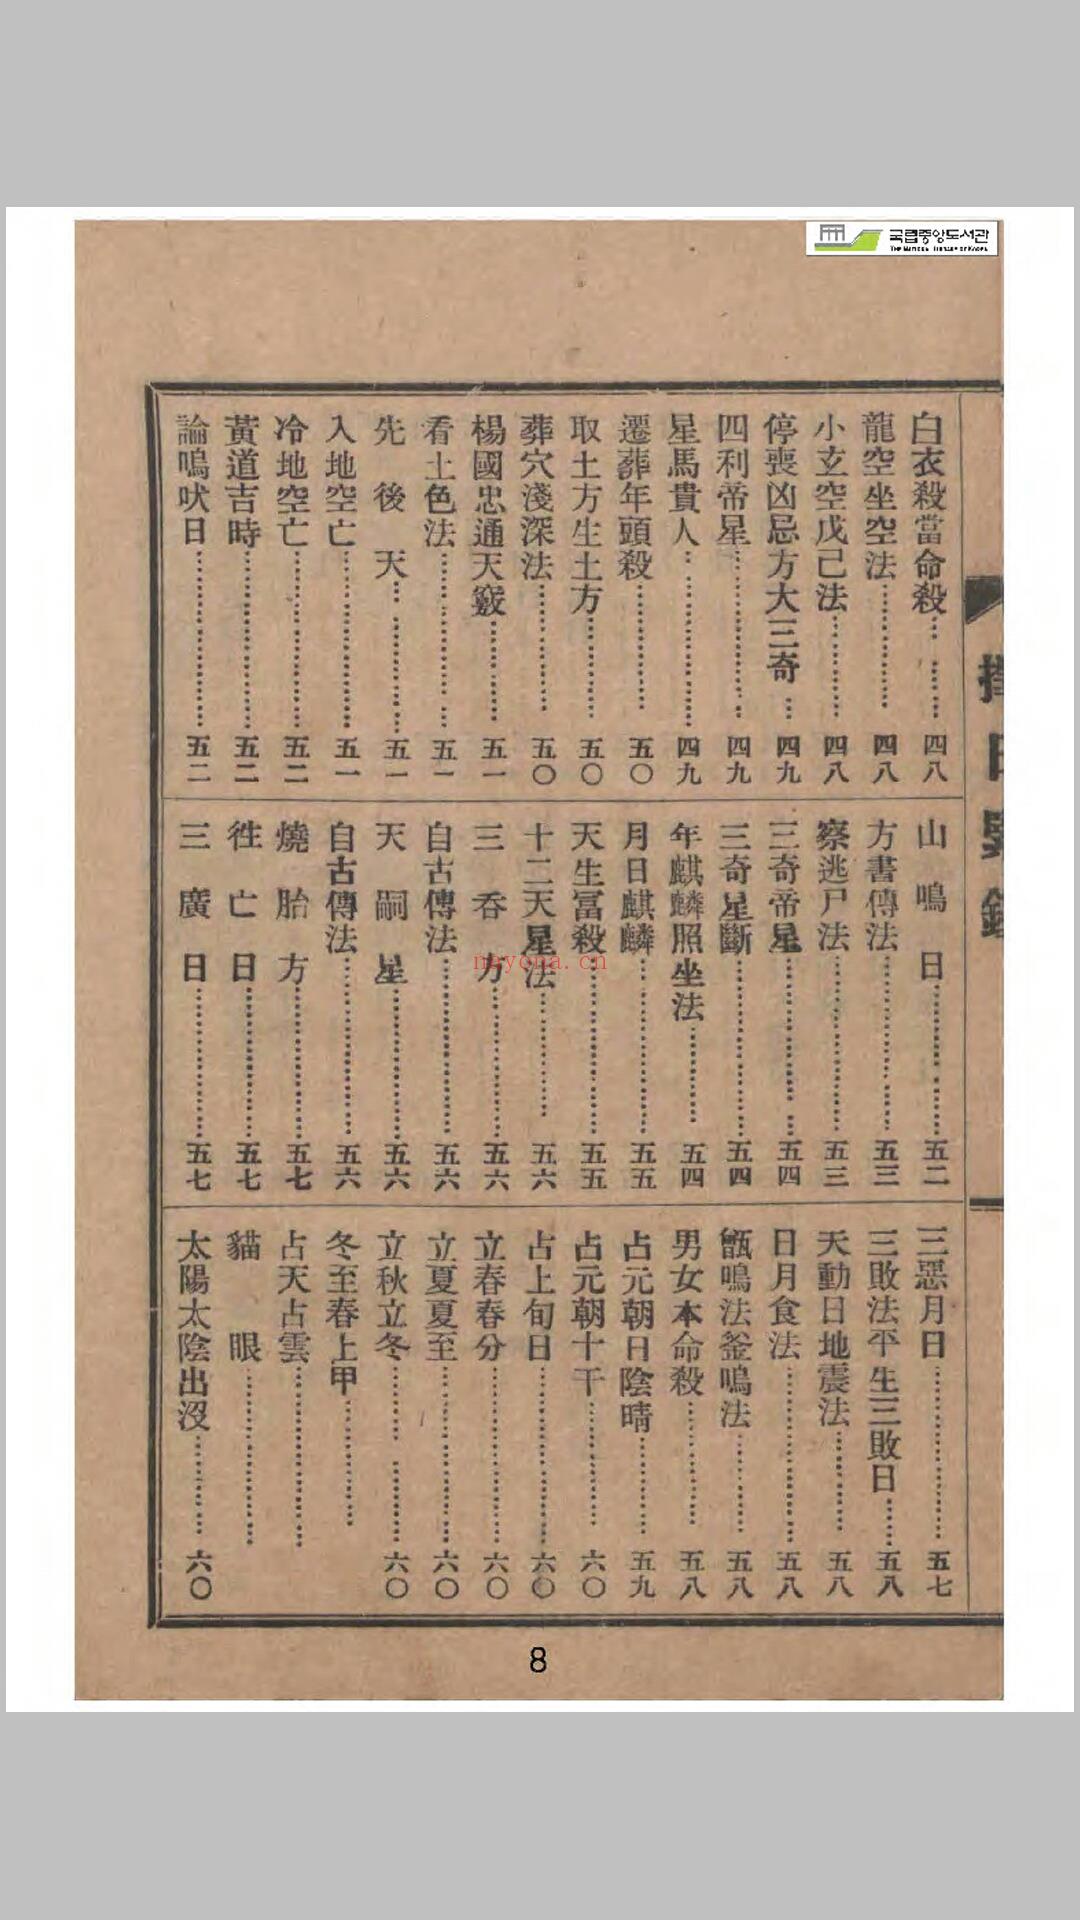 국립중앙도서관
THE NATIONAL LIBRARY OF KOREA
白衣殺當命殺……………四八
龍空坐空法……………四八
小玄空戊己法……………四八
停喪凶忌方大三奇…四九
四利帝星……………四九
星馬貴人……………四九
遷葬年頭殺……………五〇
取土方生土方……………五〇
葬穴淺深法……………五〇
楊國忠通天竅……………五一
看土色法……………五一
先後天……………五一
入地空亡……………五一
冷地空亡……………五二
黃道吉時……………五二
論鳴吠日……………五二
山鳴日……………五二
方書傳法……………五三
察逃尸法……………五三
三奇帝星……………五四
三奇星斷……………五四
年麒麟照坐法……………五四
月日麒麟……………五五
天生冨殺……………五五
十二天星法……………五六
三吞方……………五六
自古傳法……………五六
天嗣星……………五六
自古傳法……………五六
燒胎方……………五七
徃亡日……………五七
三廣日……………五七
三惡月日……………五七
三敗法平生三敗日……五八
天動日地震法……………五八
日月食法……………五八
甑鳴法釜鳴法……………五八
男女本命殺……………五八
占元朝日陰晴……………五九
占元朝十干……………六〇
占上旬日……………六〇
立春春分……………六〇
立夏夏至……………六〇
立秋立冬……………六〇
冬至春上甲……………
占天占雲……………
貓眼……………
太陽太陰出沒……………六〇
nayona.cn
8